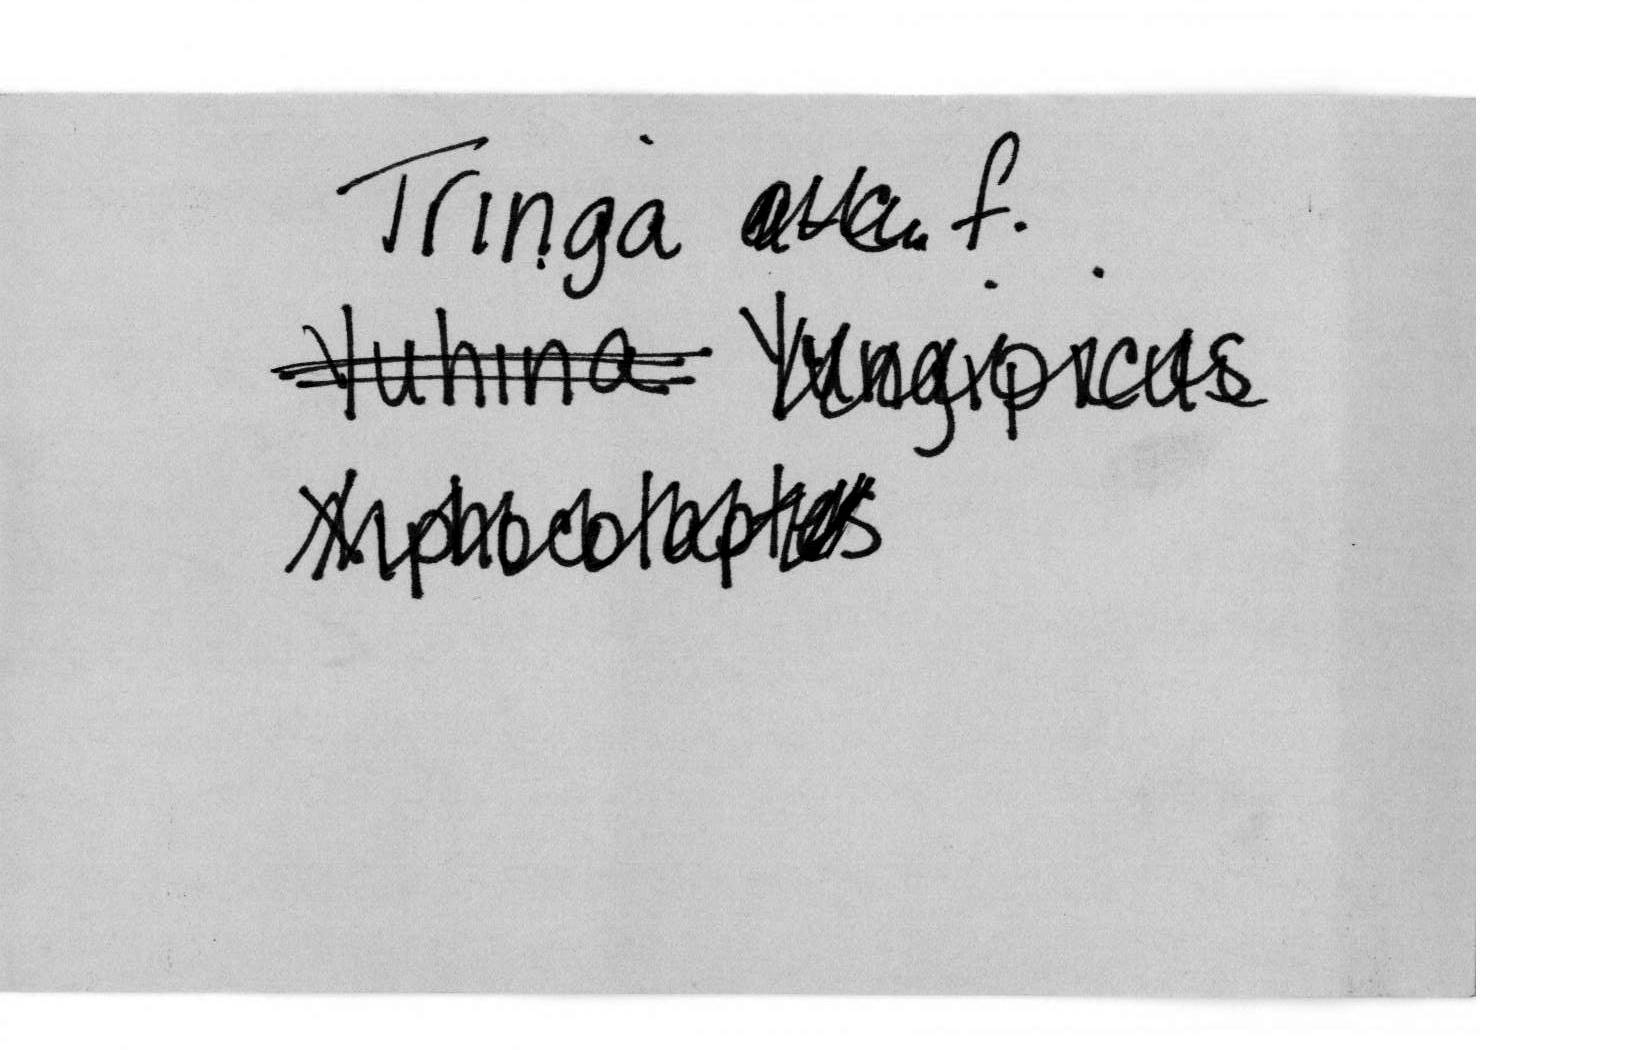 Tringa f.
Yuhina Yungipicus
Xiphocolaptes